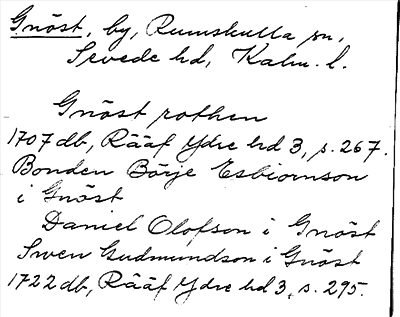 Gnöst, by, Rumskulla sn,
Sevede hd, Kalm. l.
Gnöst rothen
1707 db, Rääf Ydre hd 3, s. 267.
Bonden Börje Esbiornson
i Gnöst
Daniel Olofson i Gnöst
Swen Gudmundson i Gnöst
1722 db, Rääf Ydre hd 3, s. 295.